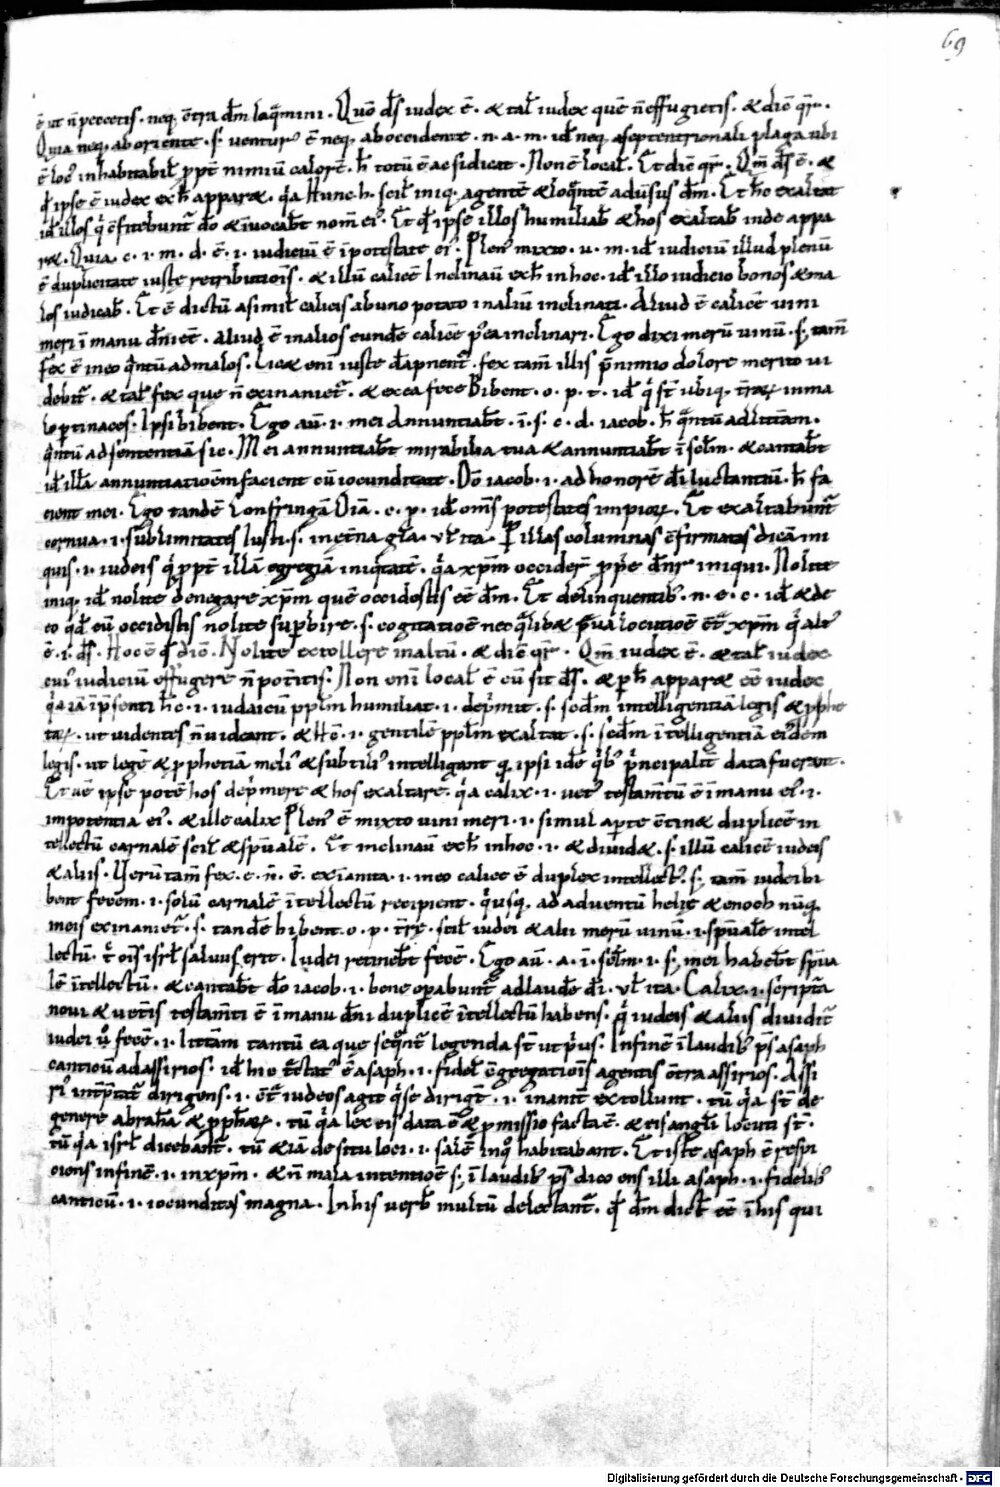 69
ē ut n̄ peccetis. neq; ſ̄tra dm̄ loq̄mini. Quō d̄s iudex ē. & tal̄ iudex quē n̄ effugietis. & diē qr̄.
Quia neq; ab oriente. s. ventur᾿ ē neq; ab occidente. n. a. m. id̄ neq; a septentrionali plaga ubi
ē loc᾿ inhabitabil̄ ꝓpt̄ nimiū calorē. h̄ totū ē ac si dicat. Non ē local̄. Et diē qr̄. Qm̄ d̄s ē. &
qd̄ ipse ē iudex ex h̄ apparet. q̇a Hunc. h. scil̄ iniq; agentē & loq̄ntē adūsus dm̄. Et h̄c exaltat
id̄ illos q̇ ſ̄fitebunt᷑ dō & inuocab̄t nom̄ ei᾿. Et qd̄ ipse illos humiliab̄ & hos exaltab̄ inde appa
ret. Quia. c. i. m. d. ē. i. iudiciū ē ī potestate ei᾿. Plen᾿ mixto. u. m. id̄ iudiciū illud plenū
ē duplicitate iustę retributiōis. & illū calicē Inclinauit ex h̄ in hoc. id̄ illo iudicio bonos & ma
los iudicab̄. Et ē dictū a simil̄ calicis ab uno potato in aliū inclinati. Aliud ē calicē uini
meri ī manu dn̄i eē. aliud ē in alios eundē calicē p̄ ea inclinari. Ego dixi merū uinū. s; tam̄
fex ē in eo q̄ntū ad malos. Licet enī iuste dāpnent᷑. fex tam̄ illis p̄ nimio dolore merito ui
debit᷑. & tal̄ fex que n̄ exinaniet᷑. & ex ea fece Bibent. o. p. t. id̄ q̇ st̄ ubiq; t̄raꝝ in ma
lo ꝑtinaces. Ipsi bibent. Ego aū. i. mei Annuntiab̄t. ī. s. c. d. iacob. h̄ q̄ntū ad litt̄am.
q̄ntū ad sententiā sic. Mei annuntiab̄t mirabilia tua & annuntiab̄t ī sclm̄. & cantab̄t
id̄ illā annuntiatiōem facient cū iocunditate. Dō iacob. i. ad honorē d̄i luctantiū. h̄ fa
cient mei. Ego tandē Confringā Oīa. c. p. id̄ om̄s potestates impioꝝ. Et exaltabunt᷑
cornua. i. sublimitates Iusti. s. in ęt̄na gl̄a. ul̄ ita. P illas columnas ſ̄firmatas dicā ini
quis. i. iudeis q̇ ꝓpt̄ illā egregiā iniq̇tatē. q̇a xp̄m occider̄ ꝓp̄e dn̄r iniqui. Nolite
iniq; id̄ nolite denegare xp̄m quē occidistis eē dm̄. Et delinquentib᾿. n. e. c. id̄ & de
eo qd̄ eū occidistis nolite supb̄ire. s. cogitatiōe nec q̄libet praua locutiōe ſ̄t᷑ xp̄m q̇ alt᾿
ē. i. d̄s. Hoc ē qd̄ diē. Nolite extollere in altū. & diē qr̄. Qm̄ iudex ē. & tal̄ iudex
cui᾿ iudiciū effugere n̄ pot̄itis. Non enī local̄ ē cū sit d̄s. & ꝑ h̄ apparet eē iudex
q̇a iā īpsenti h̄c. i. iudaicū pp̄lm humiliat. i. dep̄mit. s. scd̄m intelligentiā legis & ꝓphe
taꝝ. ut uidentes n̄ uideant. & Hc̄. i. gentilē pp̄lm exaltat. s. scd̄m ītelligentiā ei᾿dem
legis. ut legē & ꝓphetiā meli᾿ & subtili᾿ intelligant qm̄ ipsi idē q̇b᾿ p̄ncipalit᷑ data fuerant.
Et uē ipse potē hos dep̄mere & hos exaltare. q̇a calix. i. uet᾿ testam̄tū ē ī manu ei᾿. i.
in potentia ei᾿. & ille calix Plen᾿ ē mixto uini meri. i. simul aperte ſ̄tinet duplicē in
tellectū carnalē scil̄ & spūalē. Et inclinauit ex h̄ in hoc. i. & diuidet. s. illū calicē iudeis
& aliis. Uerūtam̄ fex. e. n. ē. exīanita. i. in eo calice ē duplex intellect᾿. s; tam̄ iudei bi
bent fecem. i. solū carnalē ītellectū recipient. q̇usq; ad aduentū helię & enoch nūq;
in eis exinaniet᷑. s. tandē bibent. o. p. t̄re. scil̄ iudei & alii merū uinū. i. spūalē intel
lectū. & oīs isrl̄ saluus erit. Iudei retineb̄t fecē. Ego aū. a. ī. sclm̄. i. s; mei habeb̄t spūa
lē ītellectū. & cantab̄t dō iacob. i. bene opabunt᷑ ad laudē d̄i. ul̄ ita. Calix. i. scriptā
noui & uet̄is testam̄ti ē ī manu dn̄i duplicē ītellectū habens. q̇ iudeis & aliis diuidit᷑
iudei ů fecē. i. litt̄am tantū ea que seq̄nt᷑ legenda st̄ ut p̄us. Infinē ī laudib᾿ ps̄ asaph
canticū ad assirios. id̄ hic t̄ctat᾿ ē asaph. i. fidel̄ ſ̄gregatiōis agentis ſ̄tra assirios. Assi
ri᾿ int̄p̄tat᷑ dirigens. i. ſ̄t᷑ iudeos agit q̇ se dirigt̄. i. inanit̄ extollunt. tū q̇a st̄ de
genere abrahā & ꝓphetaꝝ. tū q̇a lex eis data ē & ꝓmissio facta ē. & eis angl̄i locuti st̄.
tū q̇a isrl̄ dicebant᷑. tū & iā de situ loci. i. salē in q᷎ habitabant. Et iste asaph ē respi
ciens in finē. i. in xp̄m. & n̄ mala intentiōe s; ī laudib᾿ ps̄ dico ens illi asaph. i. fidelib᾿
canticū. i. iocunditas magna. In his uerb̄ multū delectant᷑. qd̄ dm̄ dict̄ eē ī his qui
Digitalisierung gefördert durch die Deutsche Forschungsgemeinschaft - DFG